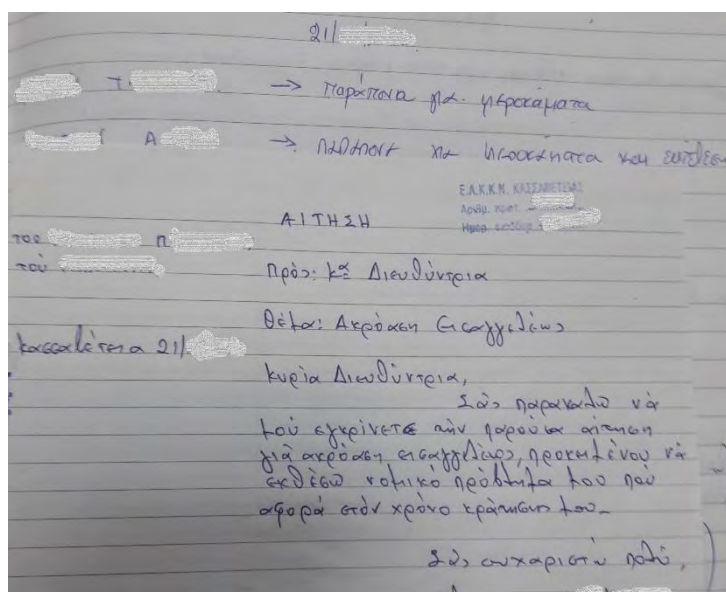 21/
Τ → Παράπονα για μεροκάματα
Α → για μεροκάματα και
Ε.Α.Κ.Κ.Ν. ΚΑΣΣΑΒΕΤΕΙΑΣ
Αριθμ. πρωτ.
Ημερ.
ΑΙΤΗΣΗ
του Π
τού
Πρός: κα Διευθύντρια
Θέμα: Ακρόαση Εισαγγελέως
Κασσαβέτεια 21/
Κυρία Διευθύντρια,
Σάς παρακαλώ νά
μού εγκρίνετε τήν παρούσα αίτηση
γιά ακρόαση εισαγγελέως, προκημένου νά
εκθέσω νομικό πρόβλημα μου πού
αφορά στόν χρόνο κράτησης μου-
Σάς ευχαριστώ πολύ,